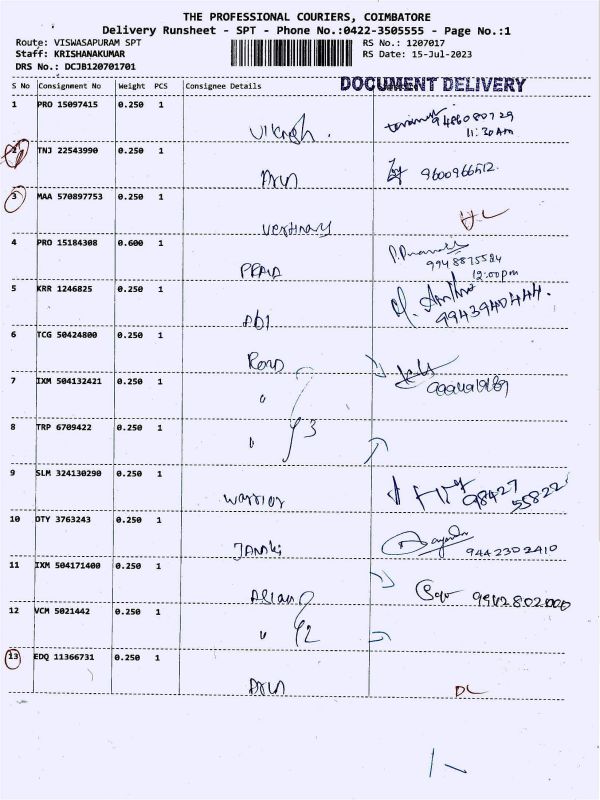 THE PROFESSIONAL COURIERS, COIMBATORE
Delivery Runsheet - SPT - Phone No.:0422-3505555 - Page No.:1
Route: VISWASAPURAM SPT
Staff: KRISHANAKUMAR
DRS No.: DCJB120701701
RS No.: 1207017
RS Date: 15-Jul-2023
DOCUMENT DELIVERY
S No Consignment No Weight PCS Consignee Details
1 PRO 15097415 0.250 1
9486080729
11:30 Am
2 TNJ 22543990 0.250 1
Arun
3 MAA 570897753 0.250 1
vertinary
4 PRO 15184308 0.600 1
12:00pm
5 KRR 1246825 0.250 1
9943940444
6 TCG 50424800 0.250 1
7 IXM 504132421 0.250 1
8 TRP 6709422 0.250 1
3
9 SLM 324130290 0.250 1
warrior
98427
55822
10 OTY 3763243 0.250 1
Janaki
9442302410
11 IXM 504171400 0.250 1
12 VCM 5021442 0.250 1
2
13 EDQ 11366731 0.250 1
Arun
DL